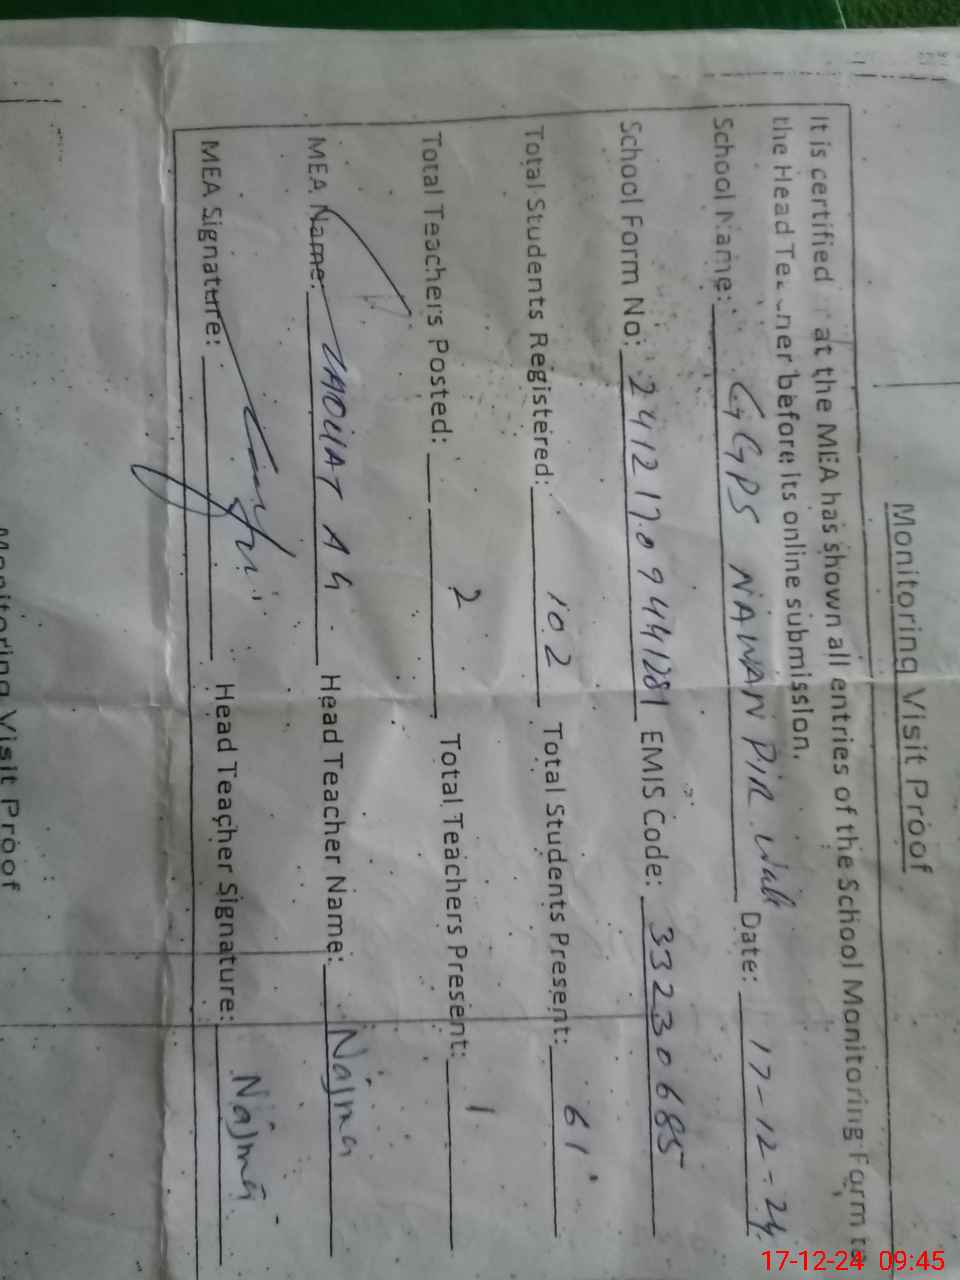 Monitoring Visit Proof
It is certified at the MEA has shown all entries of the School Monitoring Form to
the Head Teacher before its online submission.
School Name: GGPS NAWAN PIR Wali Date: 17-12-24
School Form No: EMIS Code: 33230685
Total Students Registered: 102 Total Students Present: 61
Total Teachers Posted: 2 Total Teachers Present: 1
MEA Name: Head Teacher Name: Najma
MEA Signature: Head Teacher Signature: Najma
Monitoring Visit Proof
17-12-24 09:45